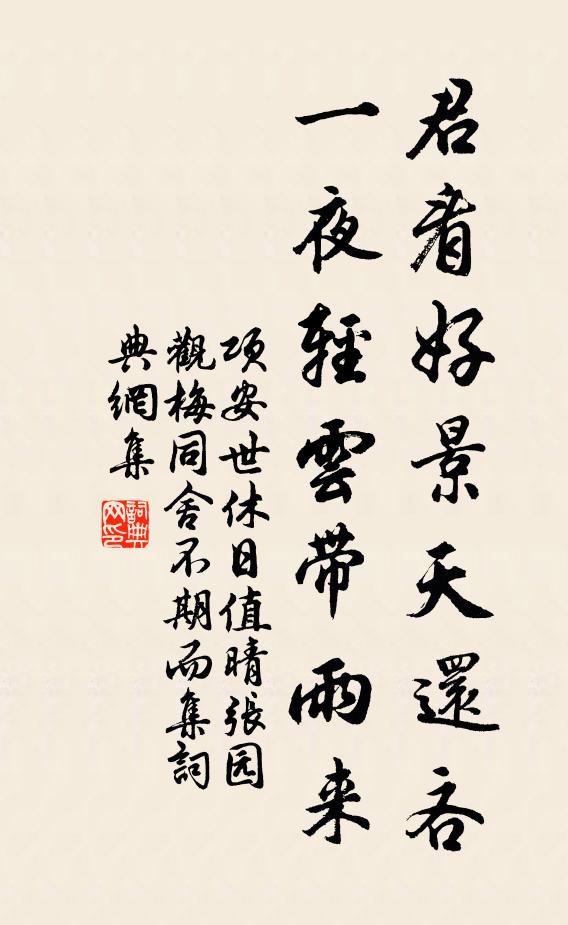 君看好景天還吝
一夜輕雲帶雨来
项安世休日值晴張园
觀梅同舍不期而集詞
典網集
詞典网印